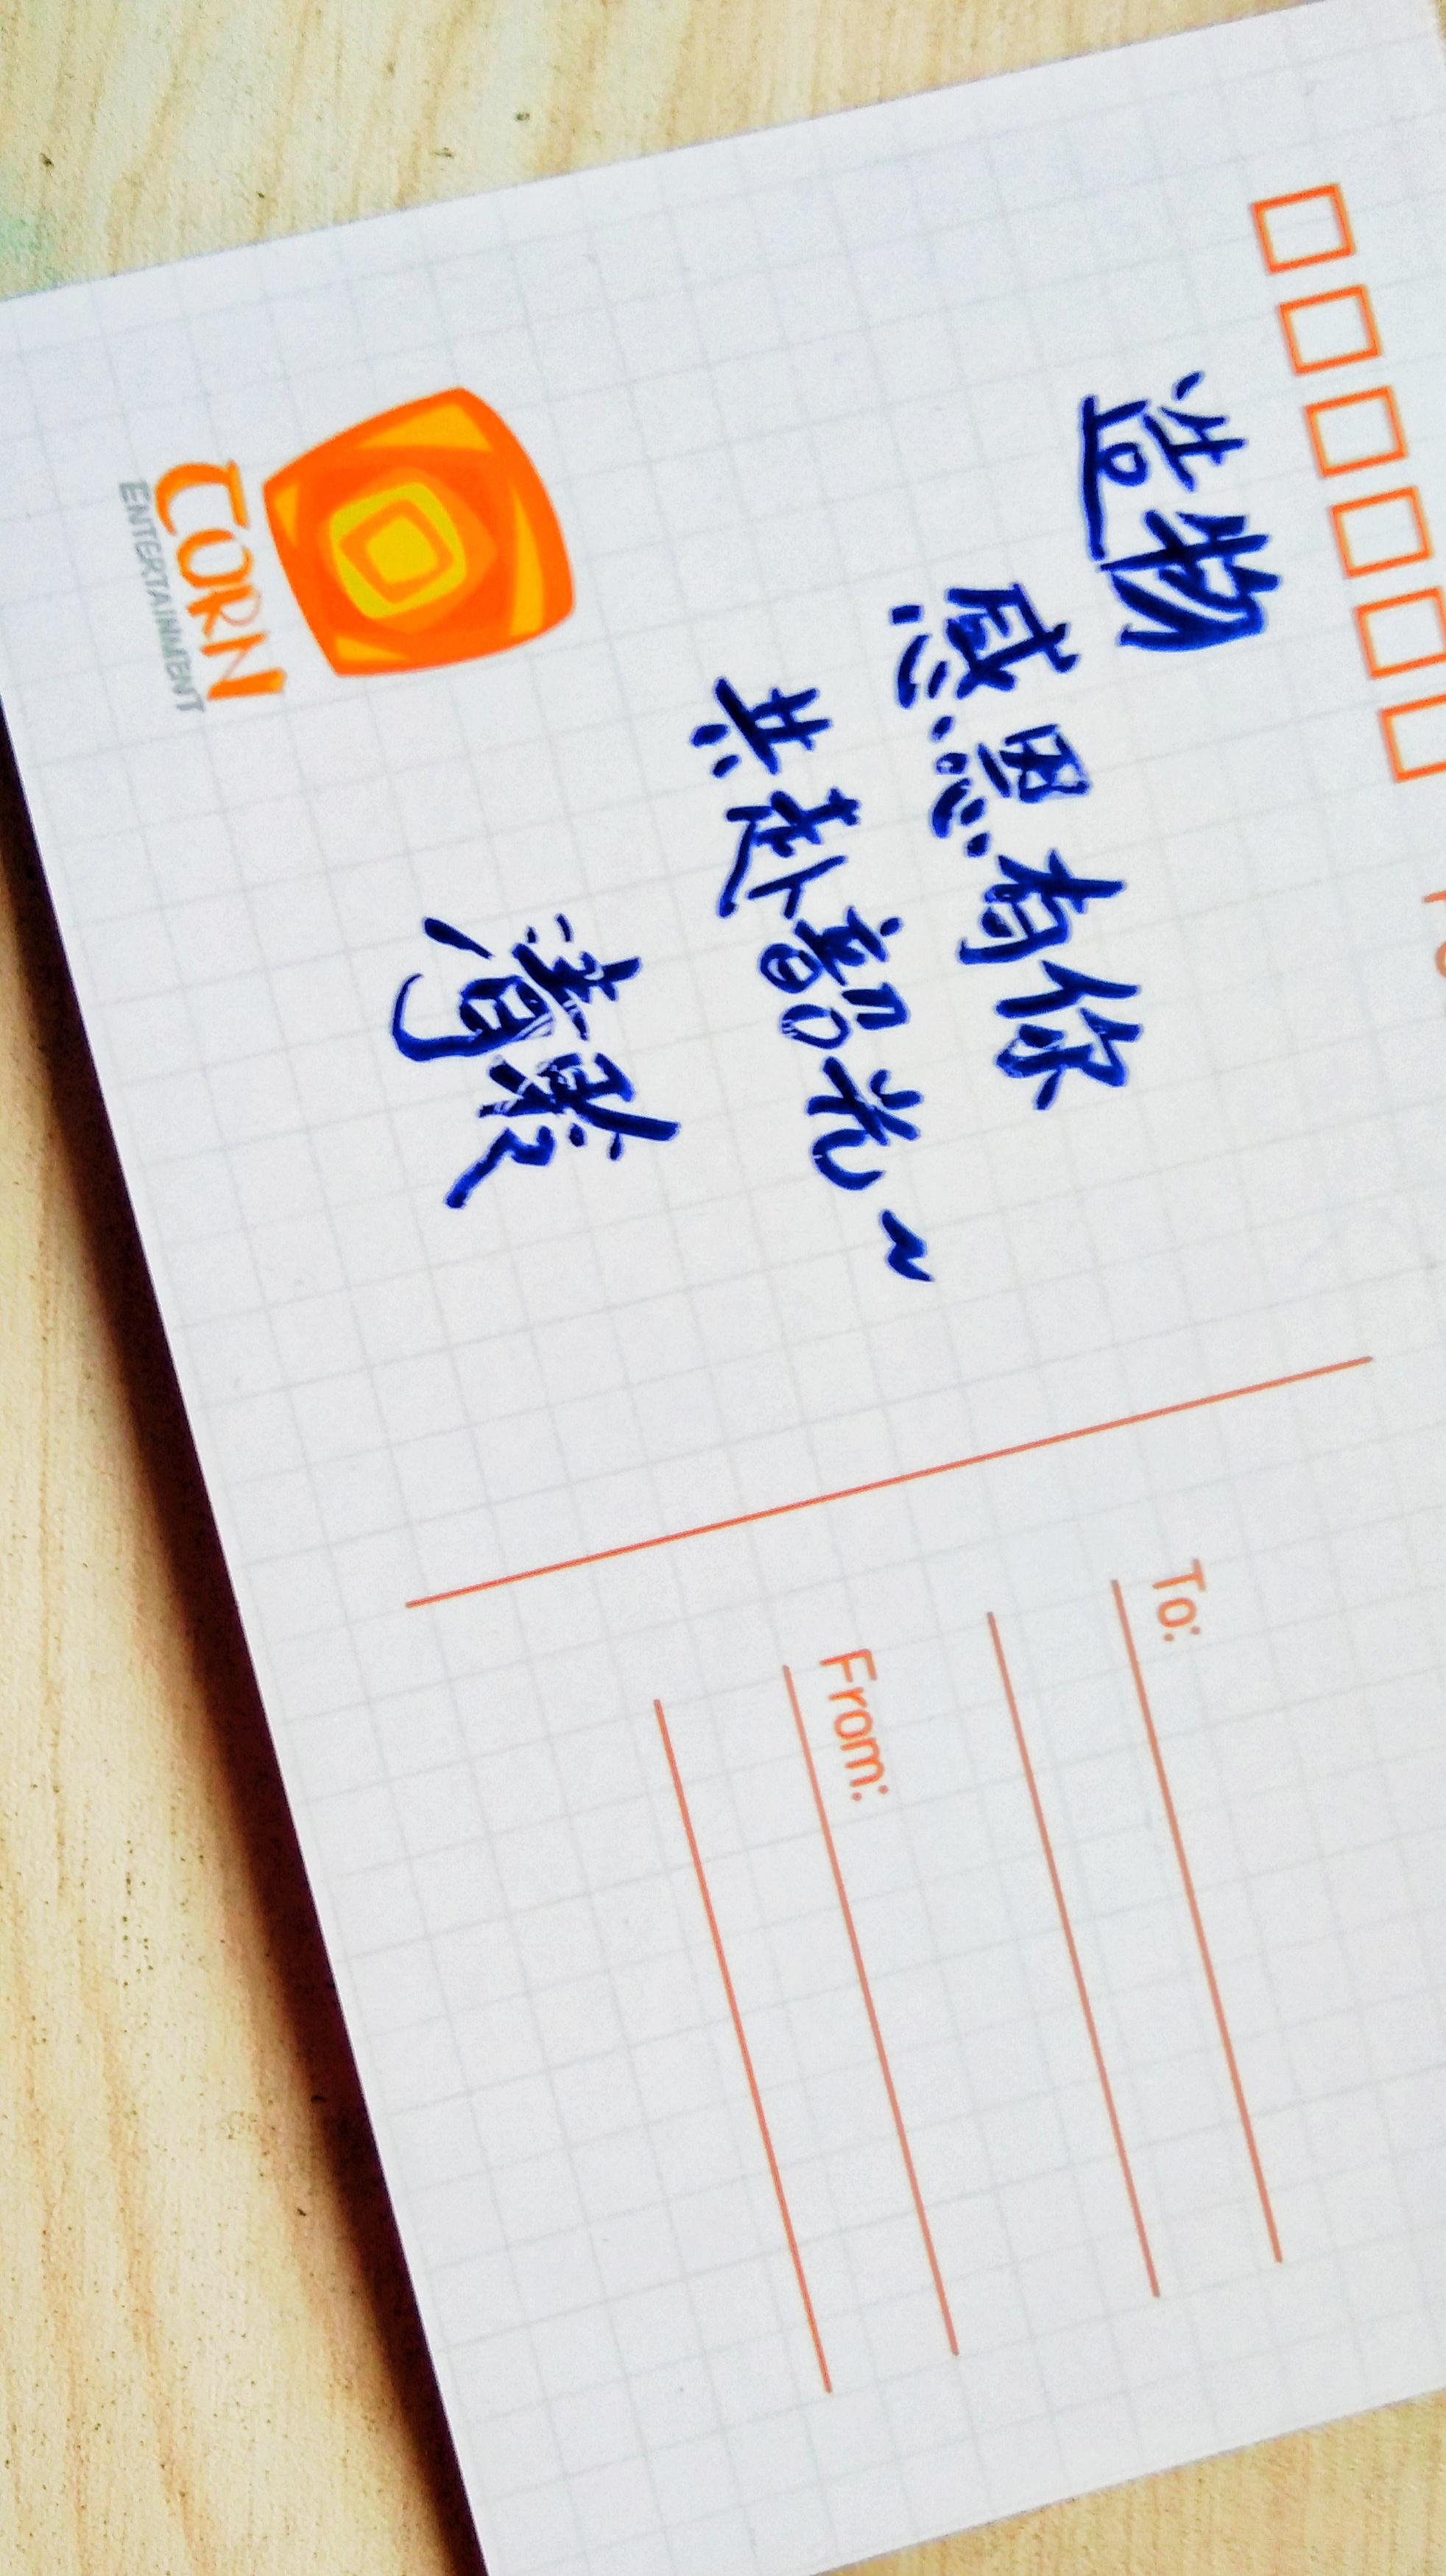 造物
感恩有你
共赴韶光~
CORN
ENTERTAINMENT
To:
From: